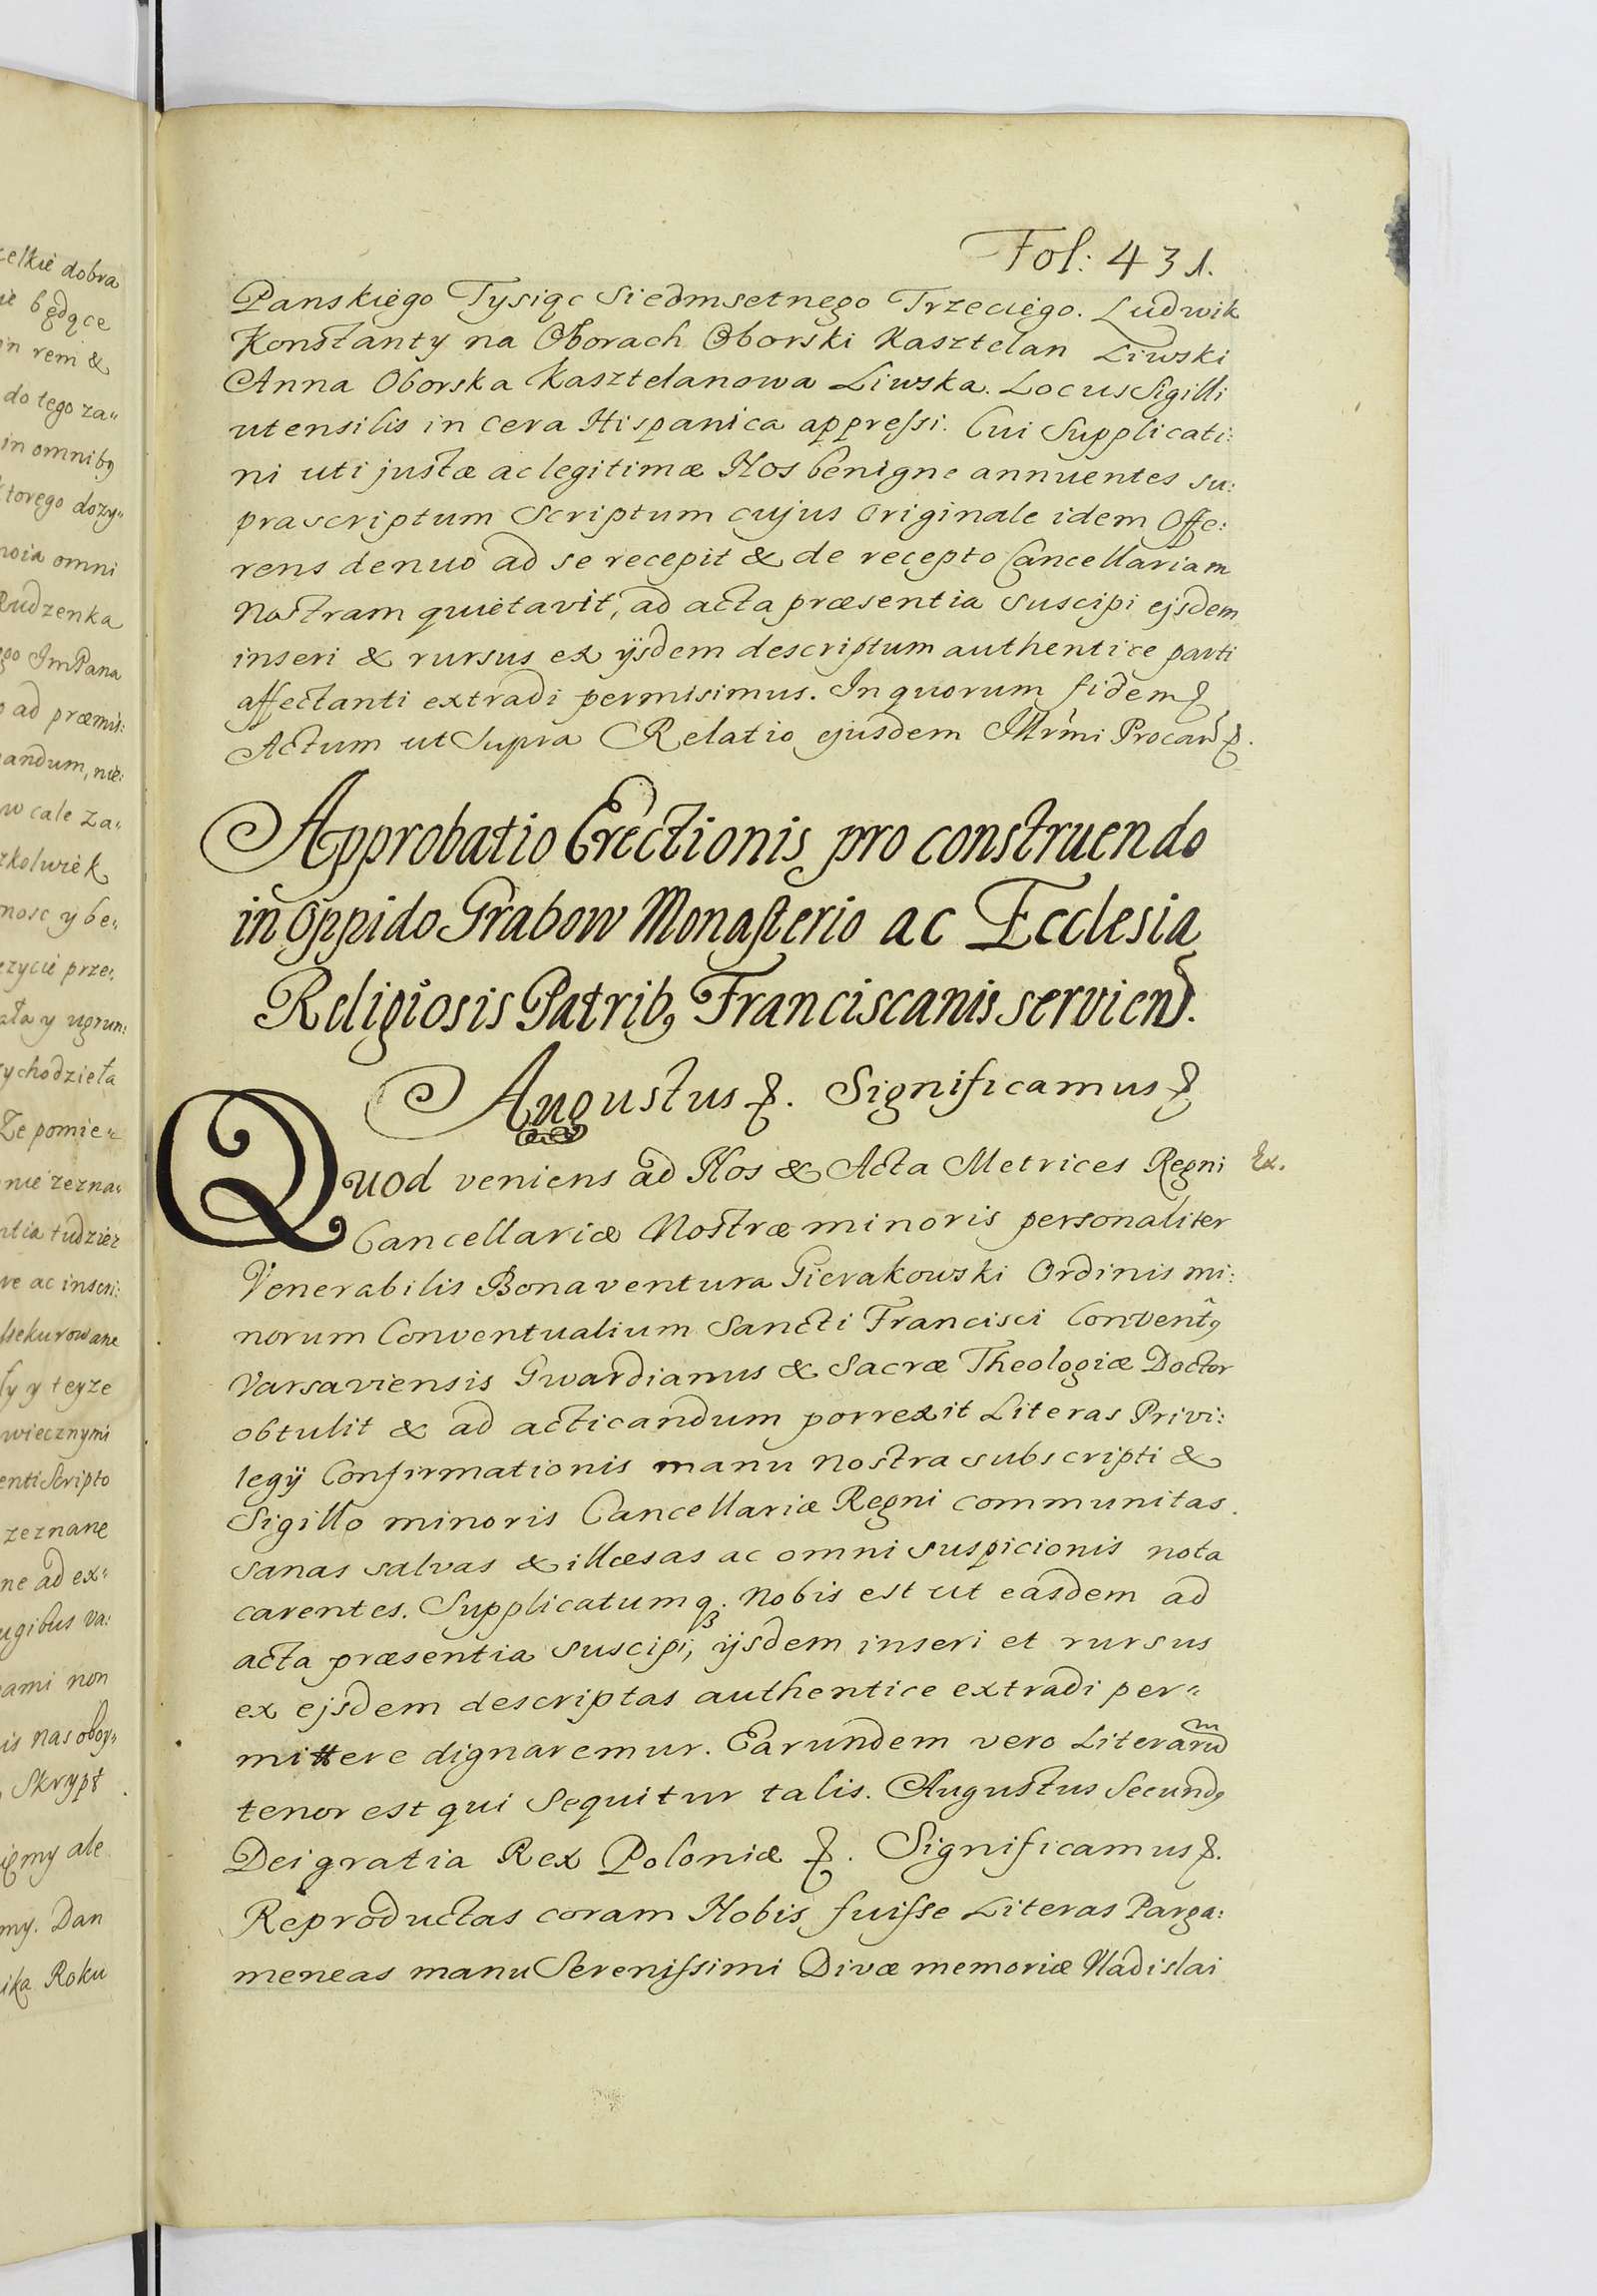 Fol: 431.
Panskiego Tysiąc Siedmsetnego Trzeciego. Ludwik
Konstanty na Oborach Oborski Kasztelan Liwski
Anna Oborska Kasztelanowa Liwska. Locus Sigilli
utensilis in cera Hispanica appressi. Cui Supplicati:
ni uti justæ ac legitimæ Nos benigne annuentes su:
prascriptum Scriptum cujus originale idem Offe:
rens denuo ad se recepit & de recepto Cancellariam
Nostram quietavit, ad acta præsentia suscipi ejsdem
inseri & rursus ex ijsdem descriptum authentice parti
affectanti extradi permisimus. In quorum fidem
Actum ut Supra Relatio ejusdem
Approbatio Erectionis pro construendo
in Oppido Grabow Monasterio ac Ecclesia
Religiosis Patrib9 Franciscanis serviend.
Augustus &. Significamus &
Quod veniens ad Nos & Acta Metrices Regni Ex.
Cancellariæ Nostræ minoris personaliter
Venerabilis Bonaventura Gierakowski Ordinis mi:
norum Conventualium Sancti Francisci Convent9
Varsaviensis Gwardianus & Sacræ Theologiæ Doctor
obtulit & ad acticandum porrexit Literas Privi:
legij Confirmationis manu nostra subscripti &
Sigillo minoris Cancellariæ Regni communitas.
sanas salvas & illæsas ac omni suspicionis nota
carentes. Supplicatumq3. Nobis est ut easdem ad
acta præsentia suscipi, ijsdem inseri et rursus
ex ejsdem descriptas authentice extradi per"
mittere dignaremur. Earundem vero Literarum
tenor est qui Sequitur talis. Augustus Secund9
Dei gratia Rex Poloniæ &. Significamus &.
Reproductas coram Nobis fuisse Literas Parga:
meneas manu Serenissimi Divæ memoriæ Vladislai